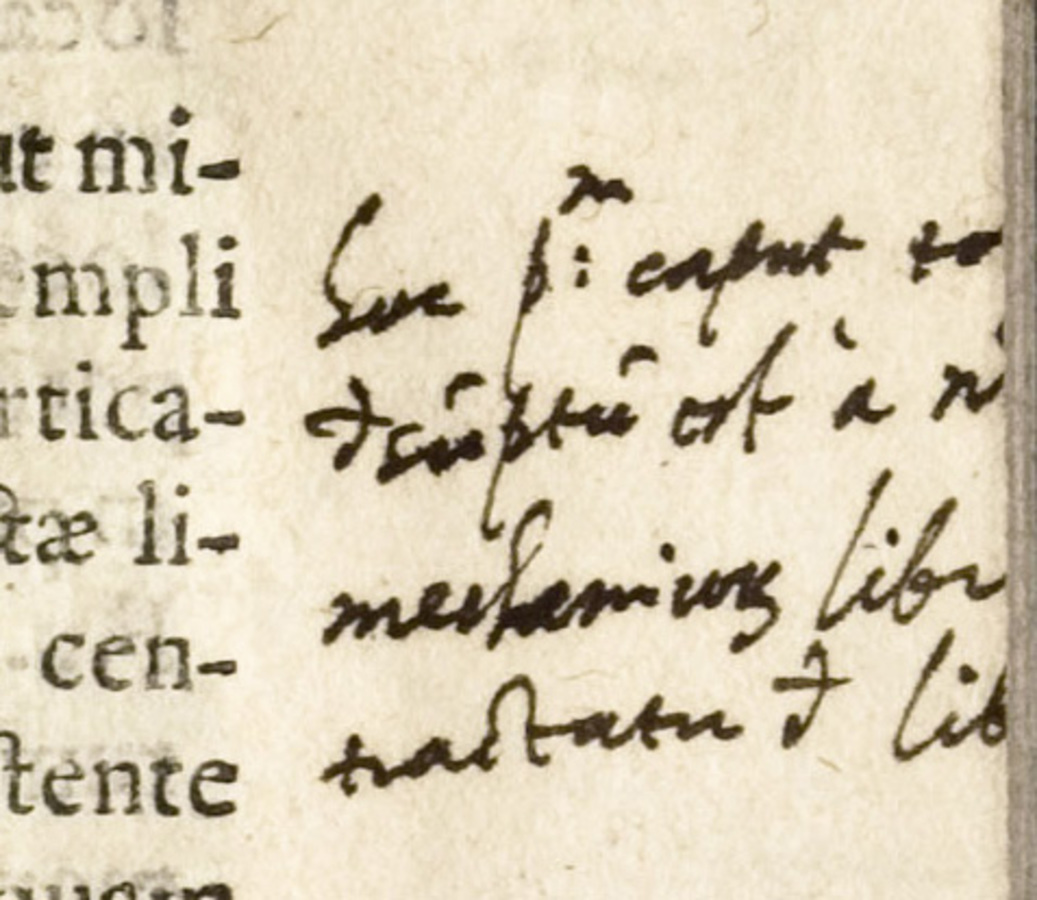 ut mi-
empli
rtica-
stæ li-
cen-
stente
huc p:ᵐ caput to
đscriptũ est à
mechanicoꝝ libr
tractatu đ lib